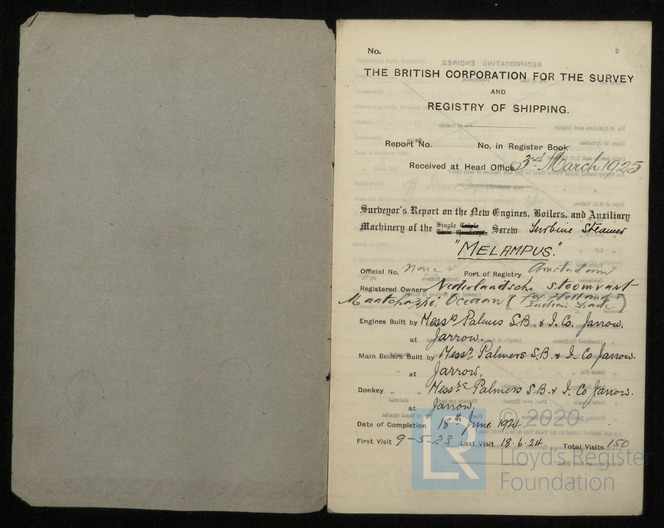 No. 2
THE BRITISH CORPORATION FOR THE SURVEY
AND
REGISTRY OF SHIPPING.
Report No. No. in Register Book
Received at Head Office 3rd March 1925
Surveyor's Report on the New Engines, Boilers, and Auxiliary
Machinery of the Single Triple Screw Turbine Steamer
Twin Quadruple
"MELAMPUS."
Official No. None Port of Registry Amsterdam
Registered Owners Nederlandsche Stoomvaart
Maatchappij Oceaan (for Holland
Indian Trade)
Engines Built by Messrs Palmers S.B. & I. Co. Jarrow.
at Jarrow.
Main Boilers Built by Messrs. Palmers S.B. & I. Co Jarrow.
at Jarrow.
Donkey " " Messrs Palmers S.B. & I. Co Jarrow.
at Jarrow.
Date of Completion 18th June 1924
First Visit 9-5-23 Last Visit 18.6.24 Total Visits 150
LR © 2020
Lloyd's Register
Foundation